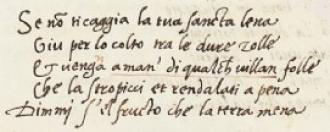 Se nō ricaggia la tua sancta lena
Giu per lo colto tra le dure zolle
Et venga a man' di qualch villan folle
Che la stropicci et rendalati a pena
Dimmi s'el fructo che la terra mena